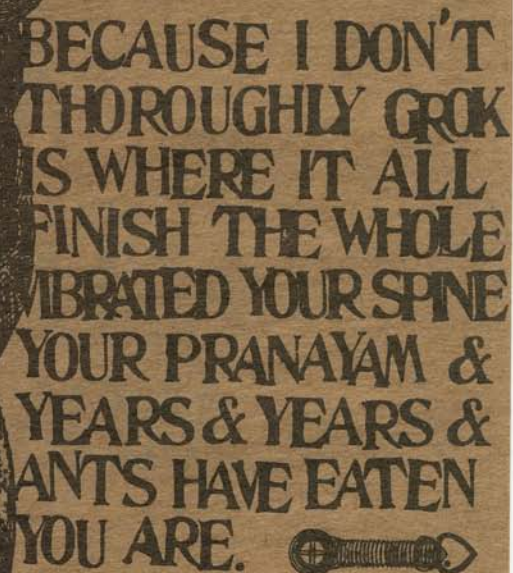 BECAUSE I DON'T
THOROUGHLY GROK
IS WHERE IT ALL
FINISH THE WHOLE
VIBRATED YOUR SPINE
YOUR PRANAYAM &
YEARS & YEARS &
ANTS HAVE EATEN
YOU ARE.